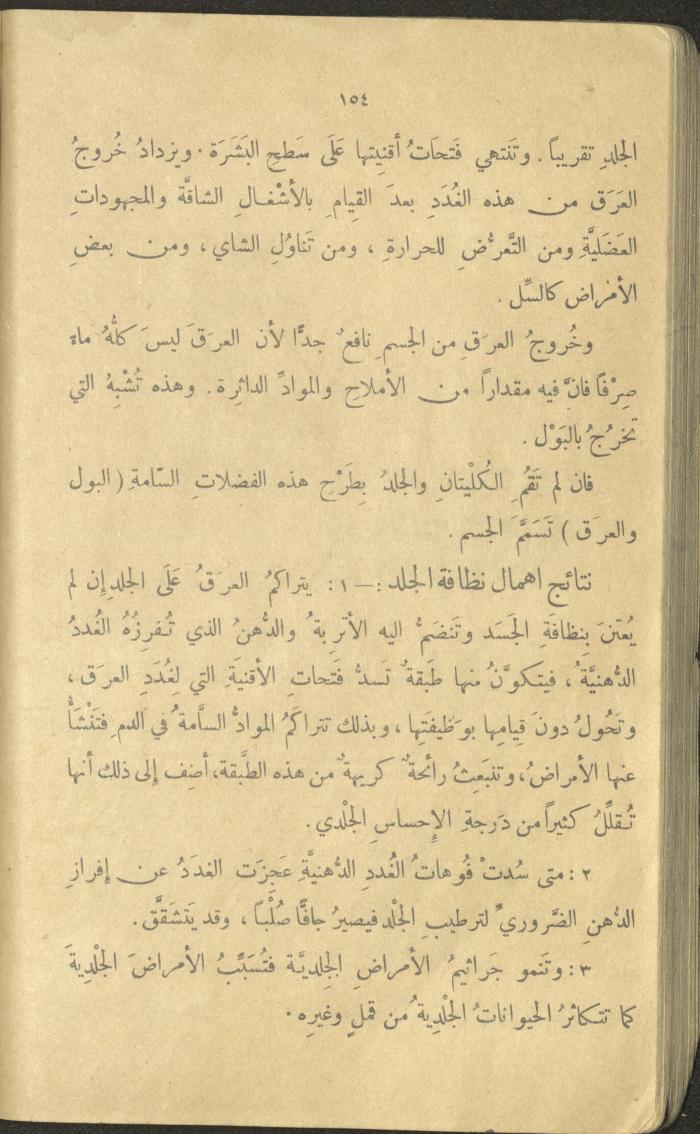 ١٥٤
الجلدِ تقريباً . وتَنتهي فَتحَاتُ أقنِيتِها عَلَى سَطحِ البَشَرَة . ويزدادُ خُروجُ
العَرَق من هذه الغُدَدِ بعدَ القيامِ بالأشْغالِ الشاقَّة والمجهوداتِ
العَضَليَّةِ ومن التَّعرُّضِ للحرارةِ ، ومن تَناوُلِ الشاي ، ومن بعضِ
الأمراض كالسِّل .
وخُروجُ العرَقِ من الجسمِ نافعٌ جدًّا لأن العرَقَ ليسَ كلُّهُ ماءً
صِرْفاً فانَّ فيه مقداراً من الأملاحِ والموادِّ الداثِرة . وهذه تُشْبِهُ التي
تخرُجُ بالبَوْل .
فان لم تَقُمِ الكُلْيتانِ والجلدُ بِطَرْحِ هذه الفضلاتِ السّامةِ ( البول
والعرَق ) تَسَمَّمَ الجسم .
نتائج اهمال نظافة الجلد :— ١ : يتراكمُ العرَقُ عَلَى الجلدِ إن لم
يُعتْنَ بِنظافَةِ الجَسَد وتَنضَمُّ اليه الأتربةُ والدُّهنُ الذي تُفرِزُهُ الغُددُ
الدُّهنيَّةُ ، فيتكوَّنُ منها طَبقةٌ تَسدُّ فَتَحاتِ الأقنيَةِ التي لِغُدَدِ العرَق ،
وتَحُولُ دونَ قِيامِها بوَظيفَتِها ، وبذلك تتراكَمُ الموادُّ السَّامةُ في الدم فتَنْشَأُ
عنها الأمراضُ ، وتنبَعِثُ رائحةٌ كريهةٌ من هذه الطَّبقة، أضِف إلى ذلك أنها
تُقلِّلُ كثيراً من دَرجةِ الإِحساسِ الجلْدي .
٢ : متى سُدتْ فُوهاتُ الغُددِ الدُّهنيَّةِ عَجِزَت الغددُ عن إفرازِ
الدُّهنِ الضَّروريِّ لترطيبِ الجِلْد فيصيرُ جافًّا صُلْباً ، وقد يَتَشَقَّق .
٣ : وتَنمو جَراثيمُ الأمراضِ الجِلديَّة فتُسَبِّبُ الأمراضَ الجلْديةَ
كما تتكاثرُ الحيواناتُ الجلْدِيةُ من قملٍ وغيرِه .